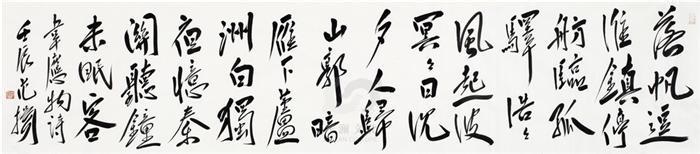 落帆逗
淮鎮停
舫臨孤
驛浩々
風起波
冥々日沈
夕人歸
山郭暗
雁下蘆
洲白獨
夜憶秦
關聽鐘
未眠客
韋應物詩
壬辰